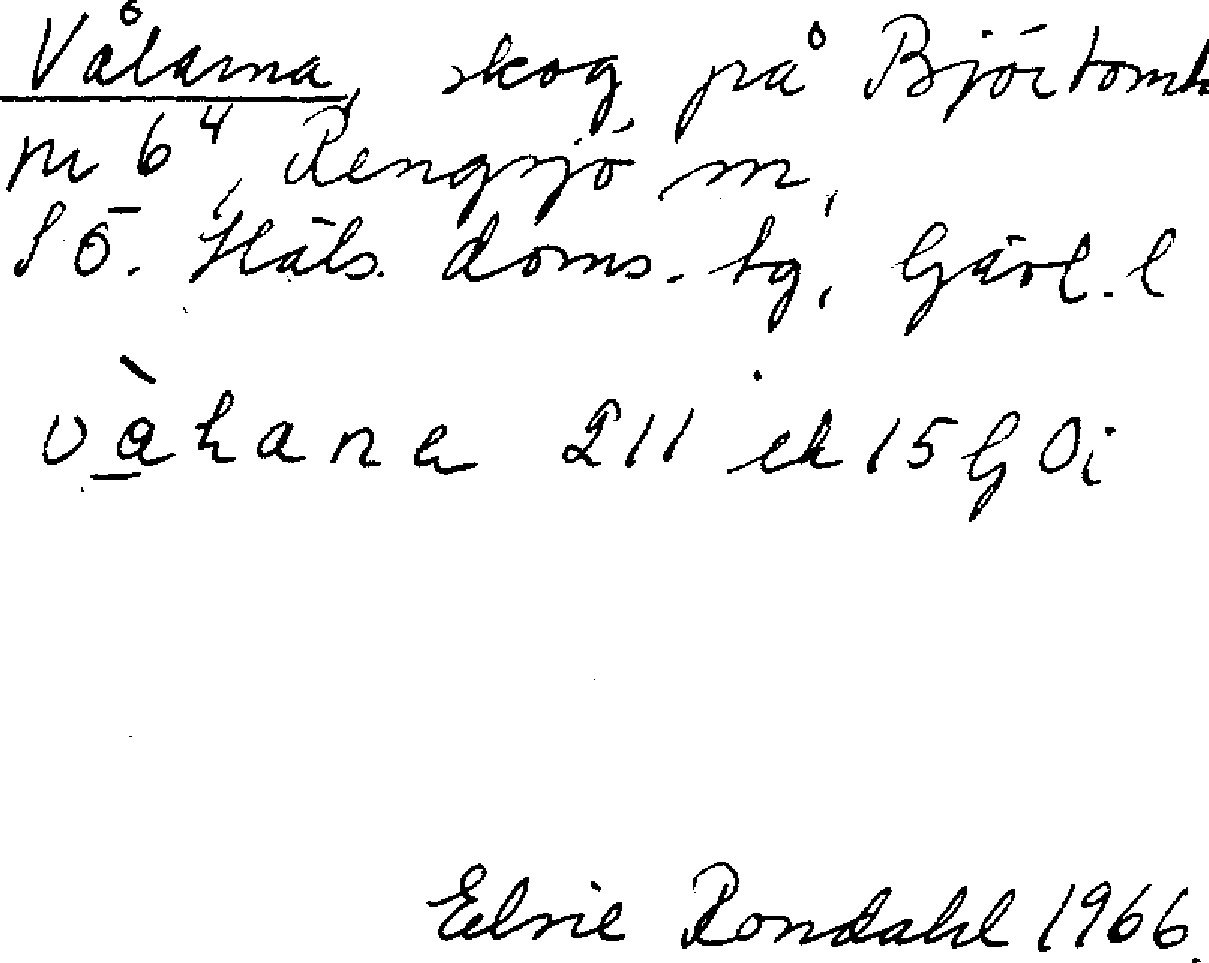 Vålarna, skog på Björtomt
nr 6⁴, Rengsjö sn,
SÖ. Häls. doms. tg, Gävl. l
vàhana 211 ek 15 G Oi
Elsie Rondahl 1966.